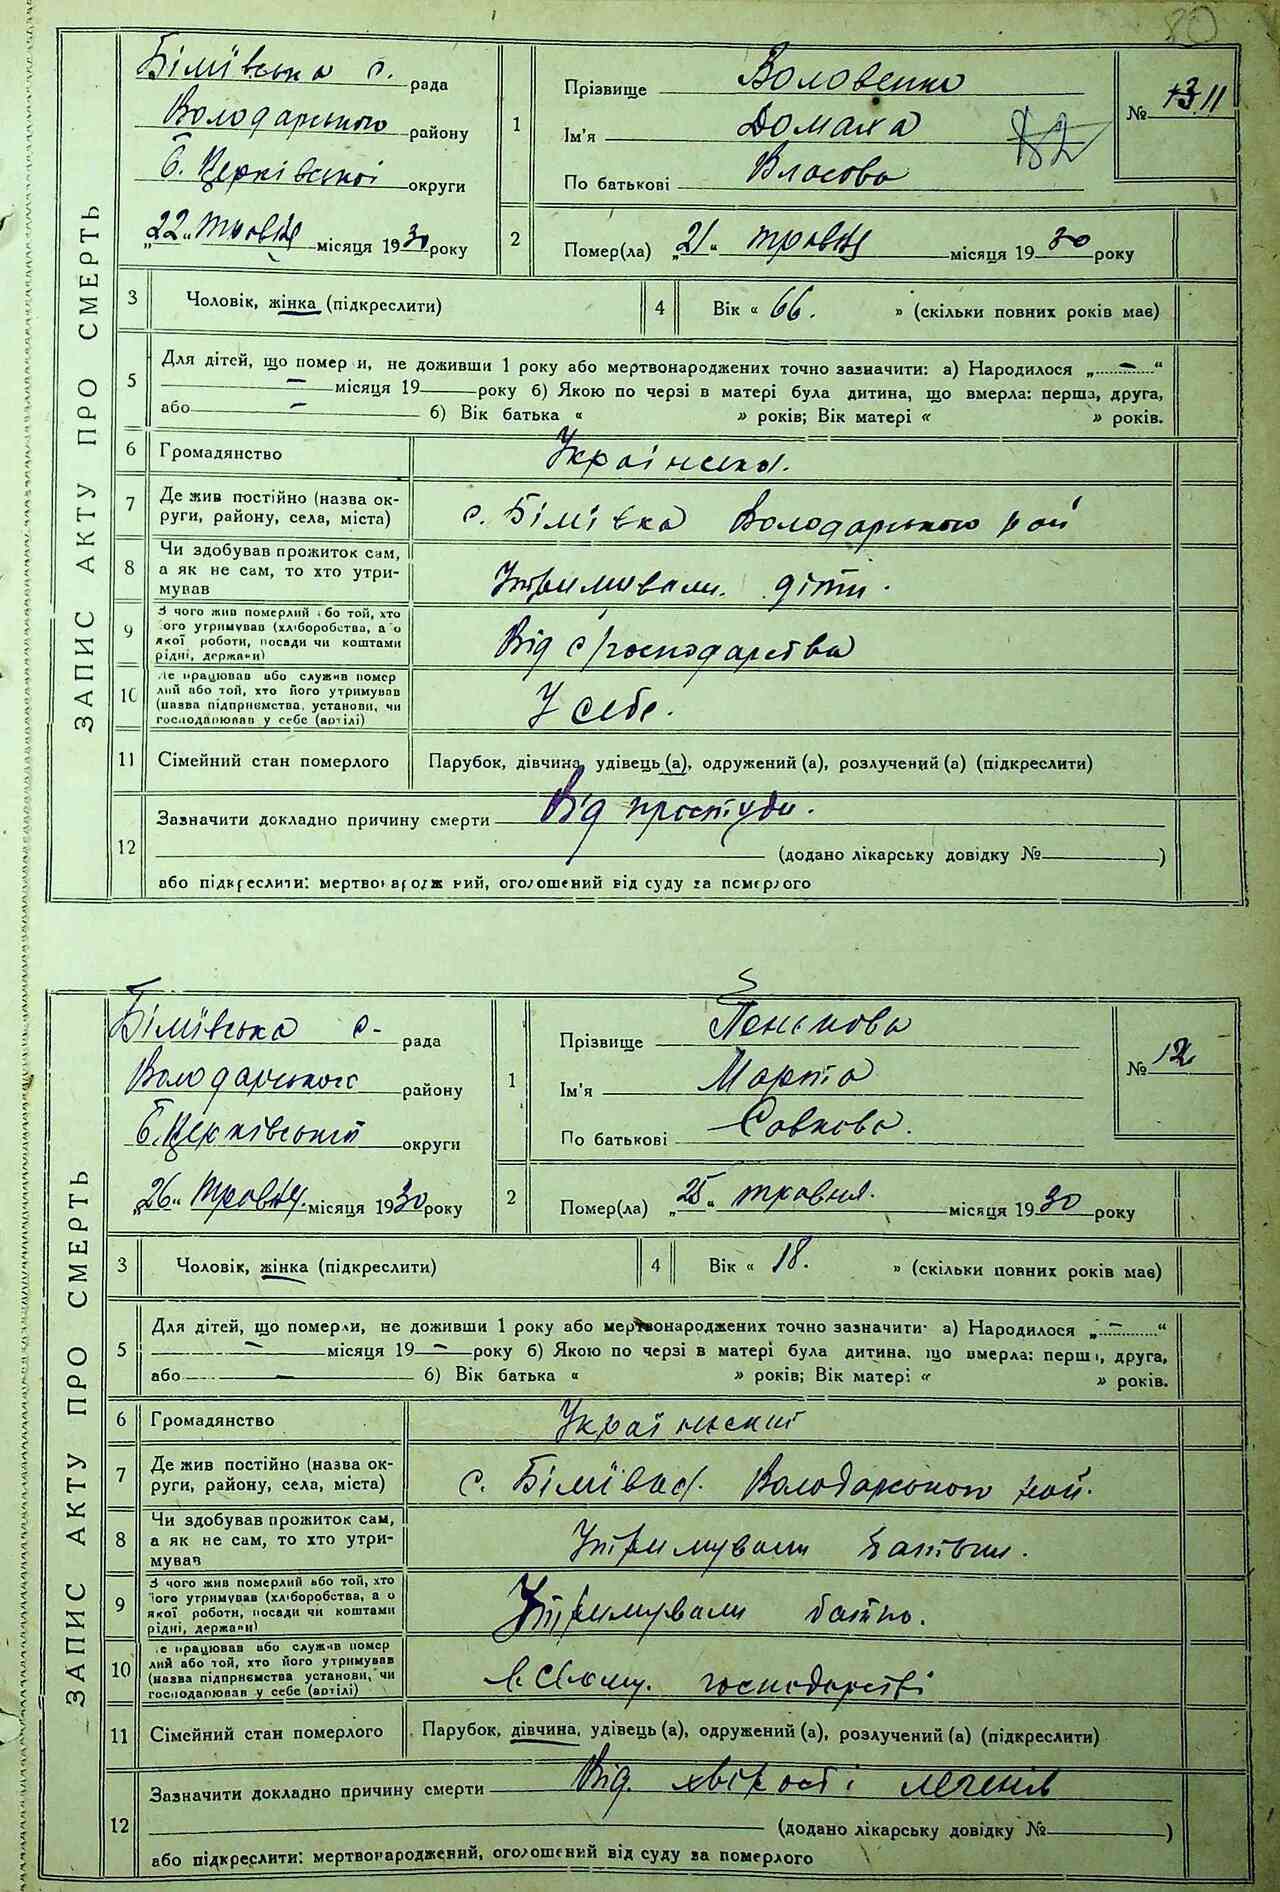 80
ЗАПИС АКТУ ПРО СМЕРТЬ
Біліївська с. рада
Володарського району
Б. Церківської округи
„22“ травня місяця 1930 року
1
Прізвище Воловенко
Ім'я Домаха
По батькові Власова
№ 11
2 Помер(ла) „21“ травня місяця 1930 року
3 Чоловік, жінка (підкреслити)
4 Вік « 66. » (скільки повних років має)
5 Для дітей, що померли, не доживши 1 року або мертвонароджених точно зазначити: а) Народилося „ — “
— місяця 19 року б) Якою по черзі в матері була дитина, що вмерла: перша, друга,
або — б) Вік батька « » років; Вік матері « » років.
6 Громадянство Українська.
7 Де жив постійно (назва ок-
руги, району, села, міста) с. Біліївка Володарського рай
8 Чи здобував прожиток сам,
а як не сам, то хто утри-
мував Утримували діти.
9 З чого жив померлий або той, хто
його утримував (хліборобства, а о
якої роботи, посади чи коштами
рідні, держави) Від с/господарства
10 Де працював або служив помер
лий або той, хто його утримував
(назва підприємства, установи, чи
господарював у себе (артілі) У себе.
11 Сімейний стан померлого Парубок, дівчина, удівець (а), одружений (а), розлучений (а) (підкреслити)
12 Зазначити докладно причину смерти Від простуди.
(додано лікарську довідку № )
або підкреслити: мертвонароджений, оголошений від суду за померлого
ЗАПИС АКТУ ПРО СМЕРТЬ
Біліївська с. рада
Володарського району
Б. Церківської округи
„26“ травня місяця 1930 року
1
Прізвище
Ім'я Марта
По батькові Савкова.
№ 12
2 Помер(ла) „25“ травня. місяця 1930 року
3 Чоловік, жінка (підкреслити)
4 Вік « 18. » (скільки повних років має)
5 Для дітей, що померли, не доживши 1 року або мертвонароджених точно зазначити: а) Народилося „ — “
— місяця 19 — року б) Якою по черзі в матері була дитина, що вмерла: перша, друга,
або — б) Вік батька « » років; Вік матері « » років.
6 Громадянство
7 Де жив постійно (назва ок-
руги, району, села, міста) с. Біліївка. Володарського рай.
8 Чи здобував прожиток сам,
а як не сам, то хто утри-
мував Утримували батьки.
9 З чого жив померлий або той, хто
його утримував (хліборобства, а о
якої роботи, посади чи коштами
рідні, держави) Утримували
10 Де працював або служив помер
лий або той, хто його утримував
(назва підприємства установи, чи
господарював у себе (артілі) господарстві
11 Сімейний стан померлого Парубок, дівчина, удівець (а), одружений (а), розлучений (а) (підкреслити)
12 Зазначити докладно причину смерти Від хвірості легенів
(додано лікарську довідку № )
або підкреслити: мертвонароджений, оголошений від суду за померлого